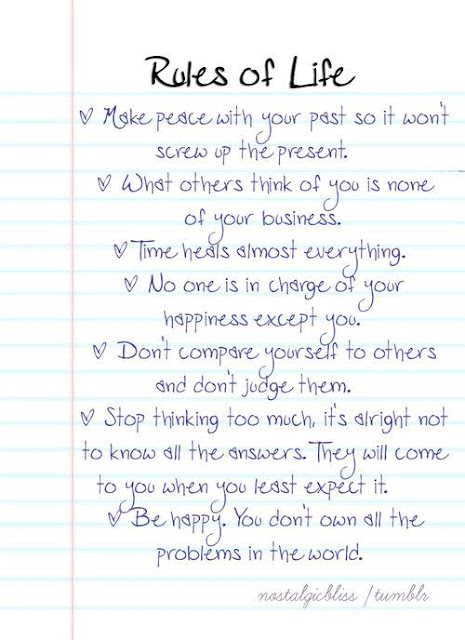 Rules of Life
♡ Make peace with your past so it won't
screw up the present.
♡ What others think of you is none
of your business.
♡ Time heals almost everything.
♡ No one is in charge of your
happiness except you.
♡ Don't compare yourself to others
and don't judge them.
♡ Stop thinking too much, it's alright not
to know all the answers. They will come
to you when you least expect it.
♡ Be happy. You don't own all the
problems in the world.
nostalgicbliss / tumblr